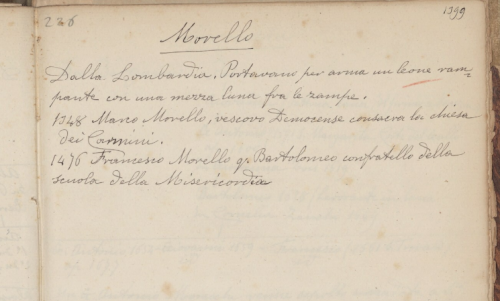 226
1399
Morello
Dalla Lombardia. Portavano per arma un leone ram=
pante con una mezza luna fra le zampe.
1348 Marco Morello, vescovo Democense consacra la chiesa
dei Carmini.
1476 Francesco Morello qr Bartolomeo confratello della
scuola della Misericordia